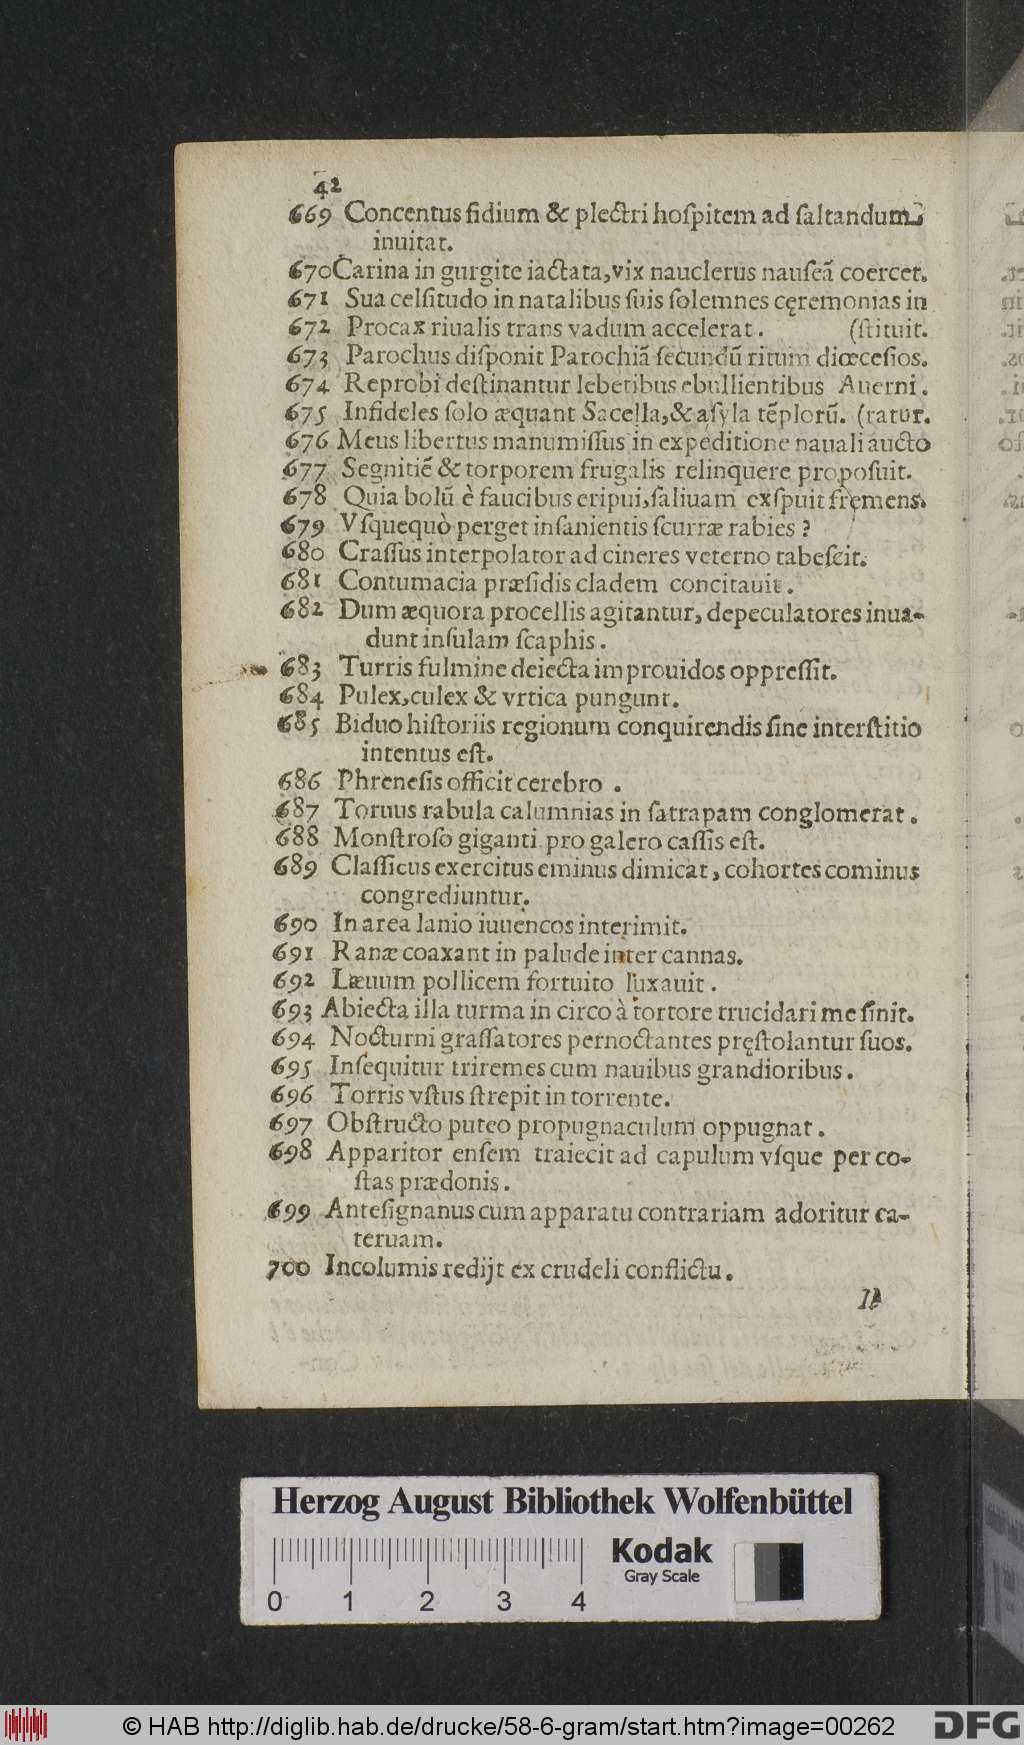 42
669 Concentus fidium & plectri hoſpitem ad ſaltandum
inuitat.
670 Carina in gurgite iactata, vix nauclerus nauſeã coercet.
671 Sua celſitudo in natalibus ſuis ſolemnes cęremonias in
672 Procax riualis trans vadum accelerat. (ſtituit.
673 Parochus diſponit Parochiã ſecundũ ritum diœceſios.
674 Reprobi deſtinantur lebetibus ebullientibus Auerni.
675 Infideles ſolo æquant Sacella, & aſyla tẽplorũ. (ratur.
676 Meus libertus manumiſſus in expeditione nauali aucto
677 Segnitiẽ & torporem frugalis relinquere propoſuit.
678 Quia bolũ è faucibus eripui, ſaliuam exſpuit fremens.
679 Vſquequò perget inſanientis ſcurræ rabies?
680 Craſſus interpolator ad cineres veterno tabeſcit.
681 Contumacia præſidis cladem concitauit.
682 Dum æquora procellis agitantur, depeculatores inua-
dunt inſulam ſcaphis.
683 Turris fulmine deiecta improuidos oppreſſit.
684 Pulex, culex & vrtica pungunt.
685 Biduo hiſtoriis regionum conquirendis ſine interſtitio
intentus eſt.
686 Phreneſis officit cerebro.
687 Toruus rabula calumnias in ſatrapam conglomerat.
688 Monſtroſo giganti pro galero caſſis eſt.
689 Claſſicus exercitus eminus dimicat, cohortes cominus
congrediuntur.
690 In area lanio iuuencos interimit.
691 Ranæ coaxant in palude inter cannas.
692 Læuum pollicem fortuito luxauit.
693 Abiecta illa turma in circo à tortore trucidari me ſinit.
694 Nocturni graſſatores pernoctantes pręſtolantur ſuos.
695 Inſequitur triremes cum nauibus grandioribus.
696 Torris vſtus ſtrepit in torrente.
697 Obſtructo puteo propugnaculum oppugnat.
698 Apparitor enſem traiecit ad capulum vſque per co-
ſtas prædonis.
699 Anteſignanus cum apparatu contrariam adoritur ca-
teruam.
700 Incolumis redijt ex crudeli conflictu.
Herzog August Bibliothek Wolfenbüttel
Kodak
Gray Scale
0 1 2 3 4
© HAB http://diglib.hab.de/drucke/58-6-gram/start.htm?image=00262
DFG